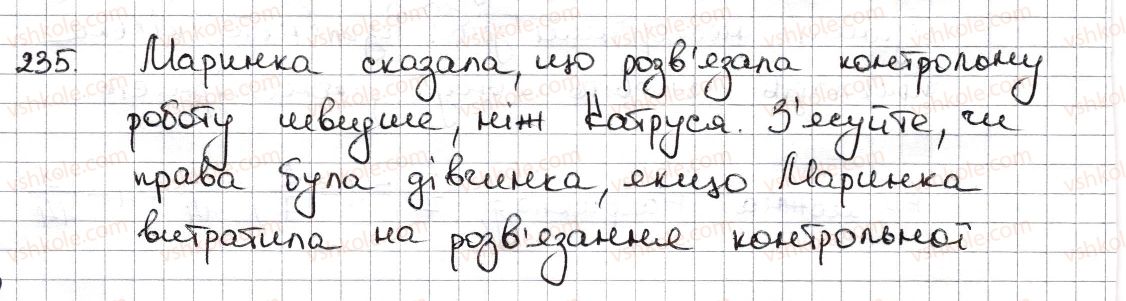 235. Маринка сказала, що розв'язала контрольну
роботу швидше, ніж Катруся. З'ясуйте, чи
права була дівчинка, якщо Маринка
витратила на розв'язання контрольної